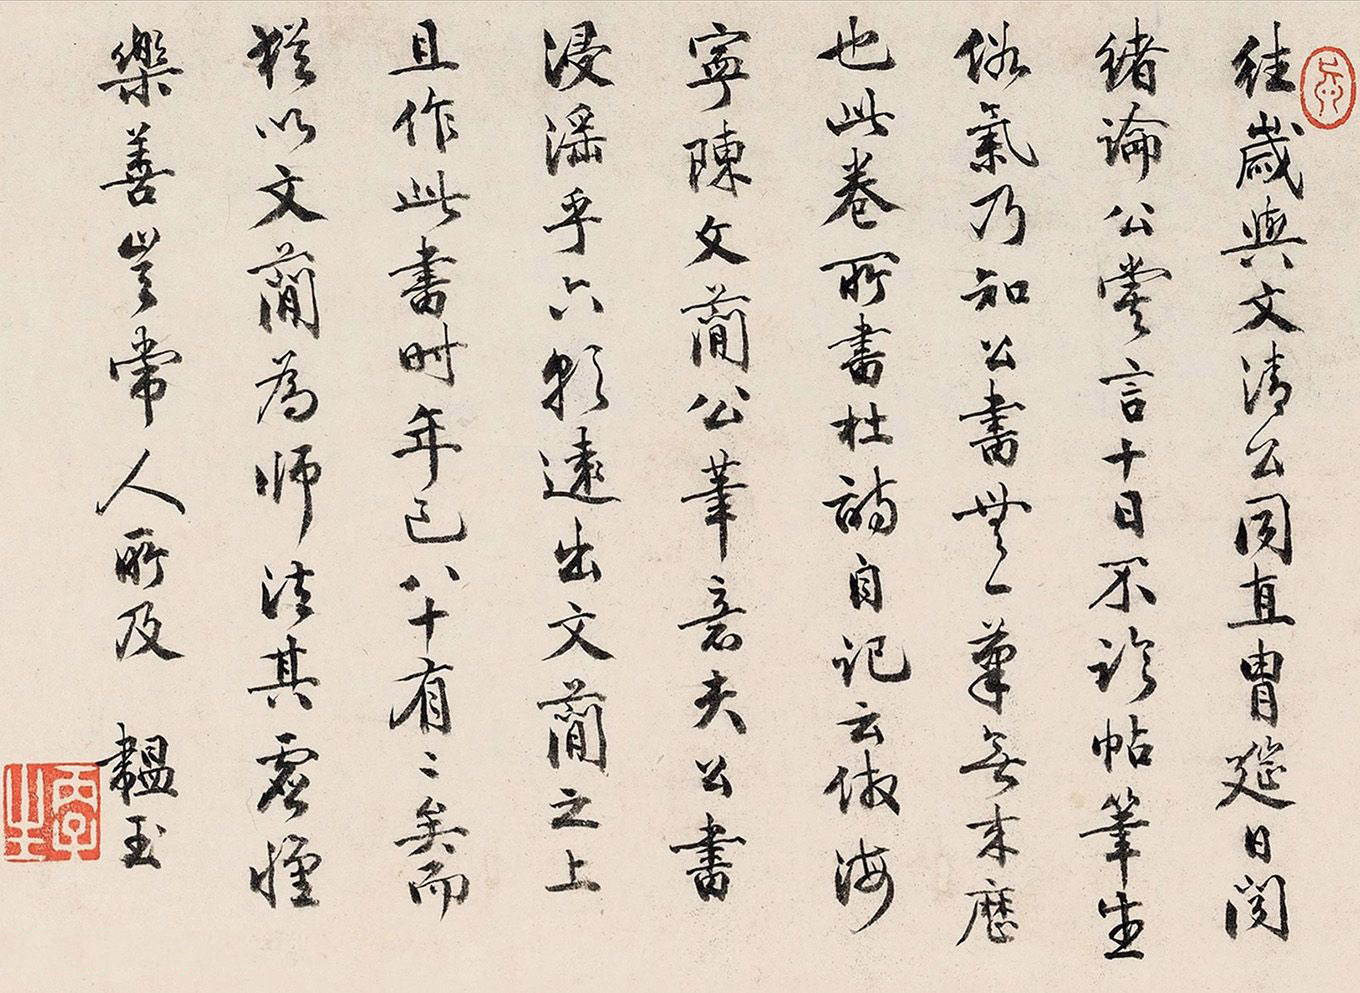 往歲與文清公同直胄筵日聞
緒論公嘗言十日不臨帖筆生
俗氣乃知公書無一筆無來歷
也此卷所書杜詩自記云倣海
寧陳文簡公筆意夫公書
浸淫乎六朝遠出文簡之上
且作此書時年已八十有二矣而
猶以文簡為師法其虛懷
樂善豈常人所及 韞玉